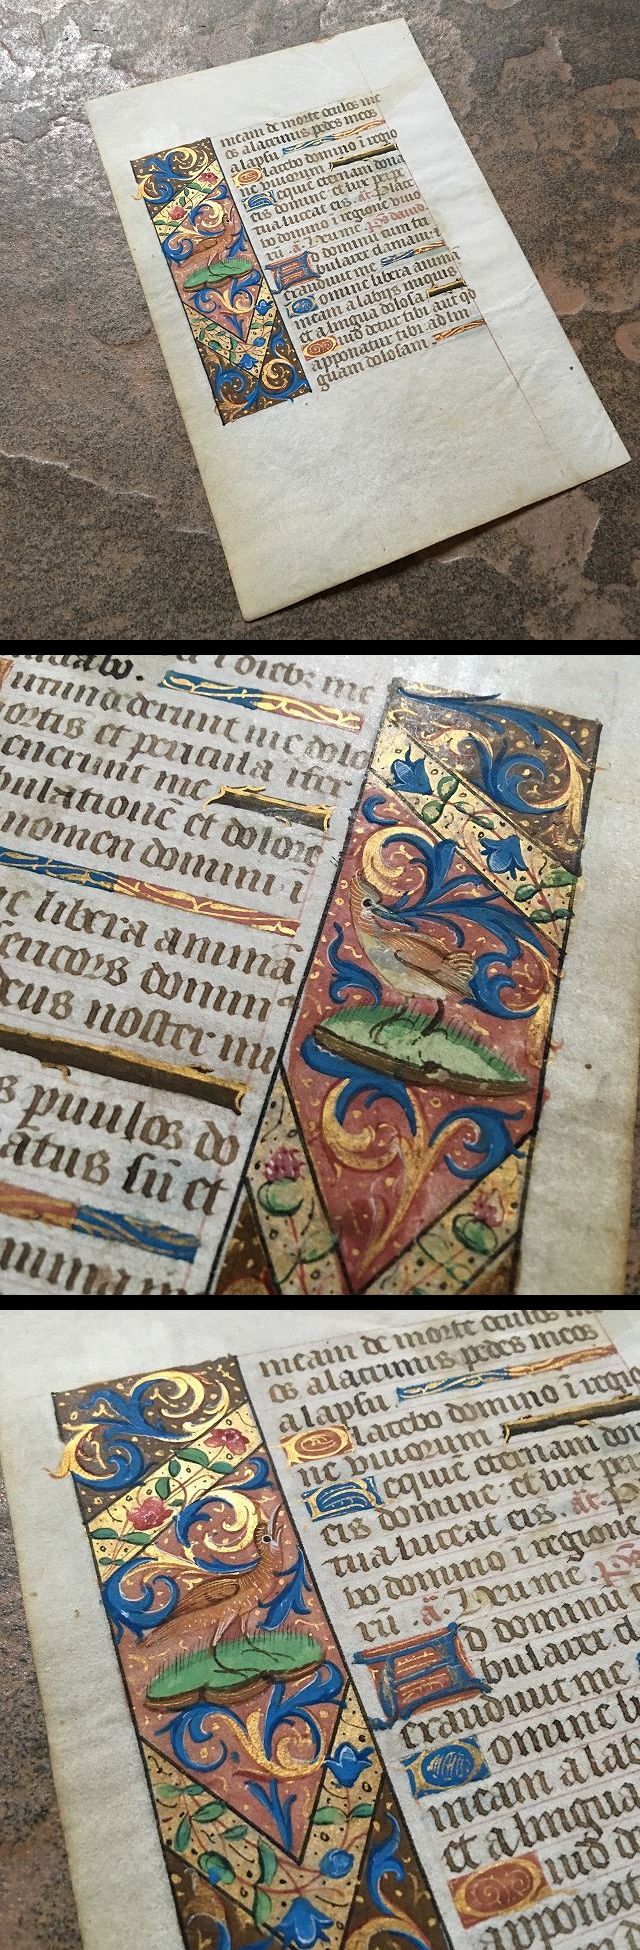 meam de morte oculos me
os a lacrimis pedes meos
a lapsu
Placebo domino i regio
ne vivorum
Requiē eternam dona
eis domine et lux perpe
tua luceat eis. añ. Place
bo domino i regione vivo
rū. añ. Heu me. ps david
Ad dominū cum tri
bularer clamavi et
exaudivit me
Domine libera animā
meam a labijs iniquis
et a lingua dolosa
Quid detur tibi aut qd
apponatur tibi ad lin
guam dolosam.
dieb; me
dederunt me dolo
mortis et pericula iferi
me
bulationē et dolorē
nomen domini i
libera animā
domin
deus noster mi
parvulos do
sū et
meam de morte oculos
os a lacrimis pedes meos
a lapsu
Placebo domino i regio
ne vivorum
Requiē eternam don
eis domine et lux per
tua luceat eis. añ
bo domino i regione
rū. añ. Heu me. ps
Ad dominū
bularer cl
exaudivit me
Domine li
meam a lab
et a lingua
Quid de
appona